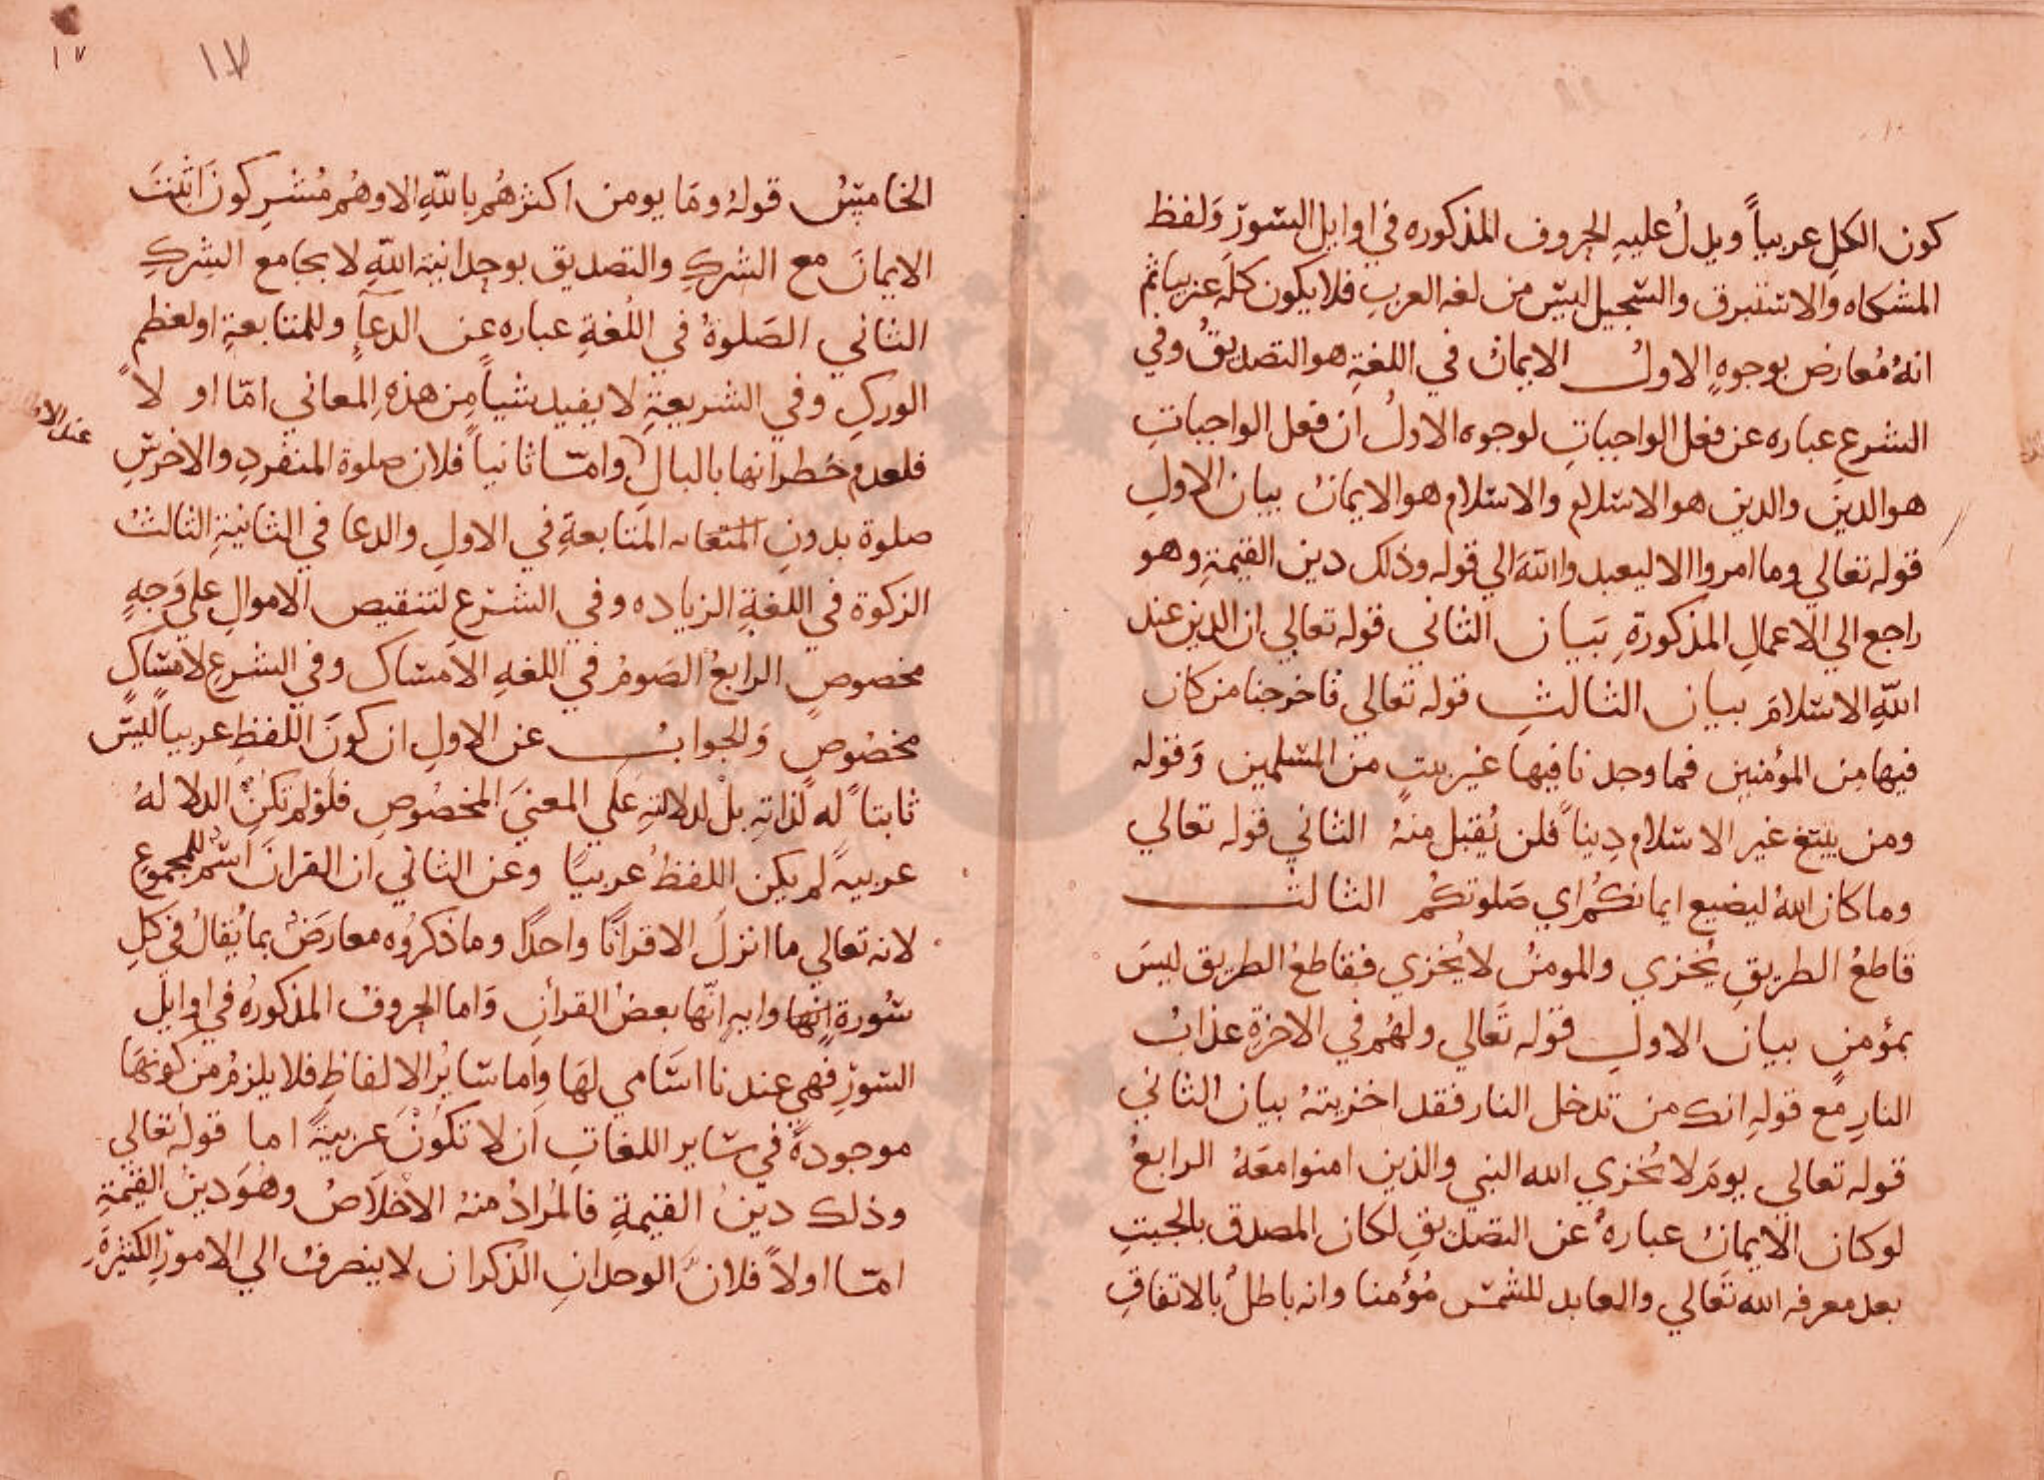 كون الكل عربياً ويدلُ عليهِ الحروف المذكوره في اوايل السور وَلفظ
المشكاه والاستبرق والسجيل ليس من لغه العرب فلا يكون كله عربيا ثم
انهُ مُعارض بوجوهٍ الاولُ الايمانُ في اللغةِ هو التصديقُ وفي
الشرع عباره عن فعل الواجباتِ لوجوه الاولُ ان فعل الواجباتِ
هو الدين والدين هو الاسلام والاسلام هو الايمانُ بيان الاولِ
قوله تعالي وما امروا الا ليعبدوا الله الي قوله وذلك دين القيمةِ وهو
راجع الي الاعمالِ المذكورةِ بَيان الثاني قوله تعالي ان الدين عند
اللّهِ الاسلامَ بيان الثالثِ قوله تعالي فاخرجنا من كان
فيها مِن المؤمنين فما وجدنا فيها غير بيتٍ من المسلمين وَقوله
ومن يبتغ غير الاسلام دِيناً فلن يُقبل منهُ الثاني قوله تعالي
وما كان اللهُ ليضيع ايمانكُم اي صَلوتكُم الثالث
قاطعُ الطريقِ يُخزي والمومنُ لا يُخزي فقاطعُ الطريق ليسَ
بمؤمنٍ بيان الاولِ قوله تَعالي ولهُم في الاخرة عذابُ
النارِ مع قولِهِ انك من تدخل النار فقد اخزيتهُ بيان الثاني
قوله تعالي يومَ لا يُخزي الله النبي والذين امنوا معَهُ الرابعُ
لو كان الايمانُ عبارهُ عن التصديقِ لكان المصدق بالجبتِ
بعد معرفه الله تَعالي والعابد للشمس مُؤمنا وانه باطلُ بالاتفاقِ
١٧
١٧
الخامسُ قولهُ ومَا يومن اكثرهُم باللّهِ الا وهُم مُشرِكونَ اثبتَ
الايمانَ مع الشركِ والتصديق بوحدانية اللّهِ لا يجامع الشركِ
الثاني الصَلوةُ في اللُغةِ عباره عن الدعآءِ وللمتابعةِ او لعظمِ
الوركِ وفي الشريعةِ لا يفيد شياً مِن هذهِ المعاني امّا اولاً
فلعدم خطرانها بالبالِ وامّا ثانياً فلان صلوة المنفردِ والاخرسِ
صلوة بدونِ المتابعةِ في الاولِ والدعا في الثانيةِ الثالثُ
الزكوة في اللغةِ الزياده وفي الشرع لتنقيص الاموالِ علي وَجهٍ
مخصوصٍ الرابعُ الصَومُ في اللغهِ الامساك وفي الشرعِ لامساكٍ
مخصُوصٍ وَالجوابُ عن الاولِ ان كونَ اللفظِ عربياً ليسَ
ثابتاً له لذاتهِ بل لدلالتهِ عَلي المعنيَ المخصُوصِ فلَو لم تكن الدلالهُ
عربيهً لم يكن اللفظُ عربياً وعن الثاني ان القرانَ اسم للمجموع
لانه تعالي ما انزلَ الا قرانًا واحدًا وما ذكرُوه معارَضُ بما يُقالُ في كلِ
سُورةٍ وايهٍ انّها بعضُ القرانِ وَاما الحروفُ المذكورهُ في اوايلَ
السورِ فهي عندنا اسَامي لهَا وَاما سَايرُ الالفاظِ فلا يلزمُ من كونهَا
موجودةً في سَاير اللغاتِ اَن لا تكونَ عَربيةً اما قولهُ تعالي
وذلك دينُ القيمةِ فالمُرادُ منهُ الاخلَاصُ وهُوَ دينُ القيمةِ
امّا اولاً فلانَ الوحدانِ الذكران لا ينصرفُ الي الامورِ الكثيرةِ